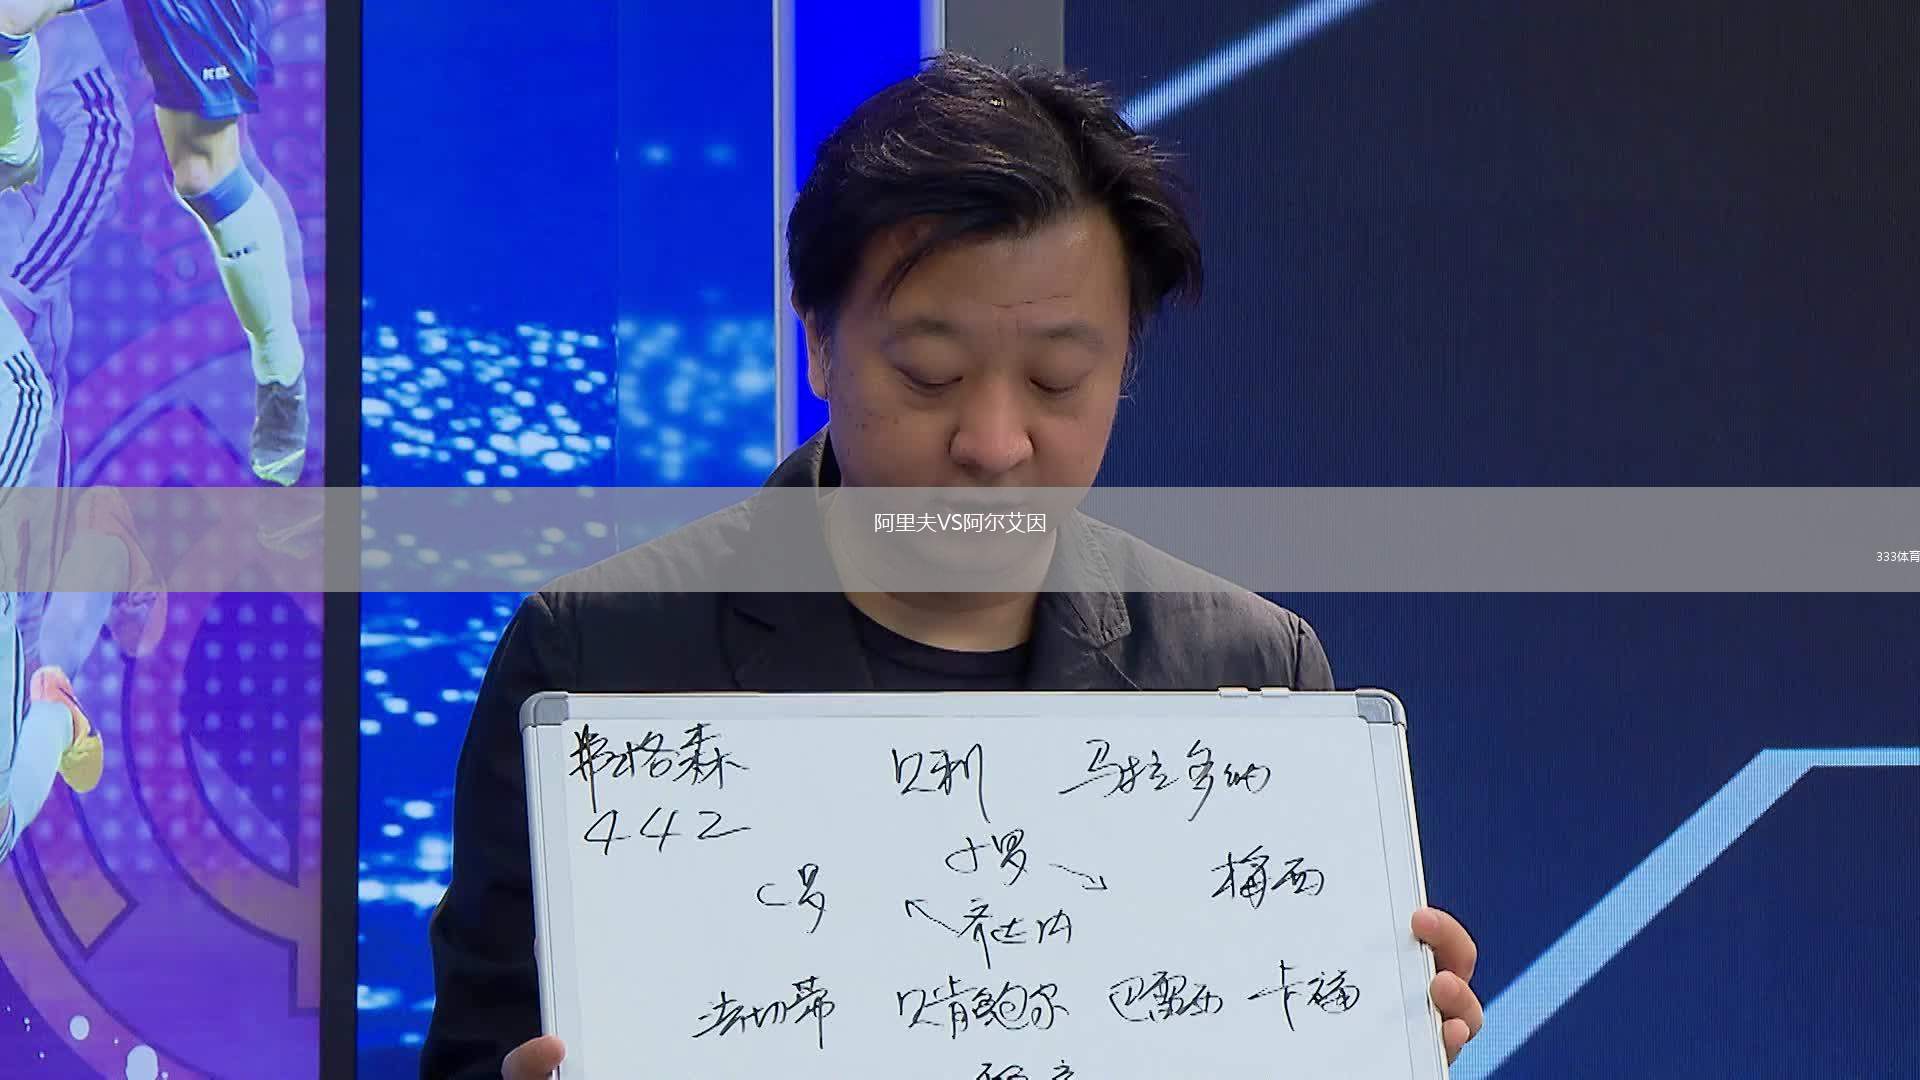 阿里夫VS阿尔艾因
333体育
弗格森 贝利 马拉多纳
442
小罗
C罗 梅西
齐达内
法切蒂 贝肯鲍尔 巴雷西 卡福